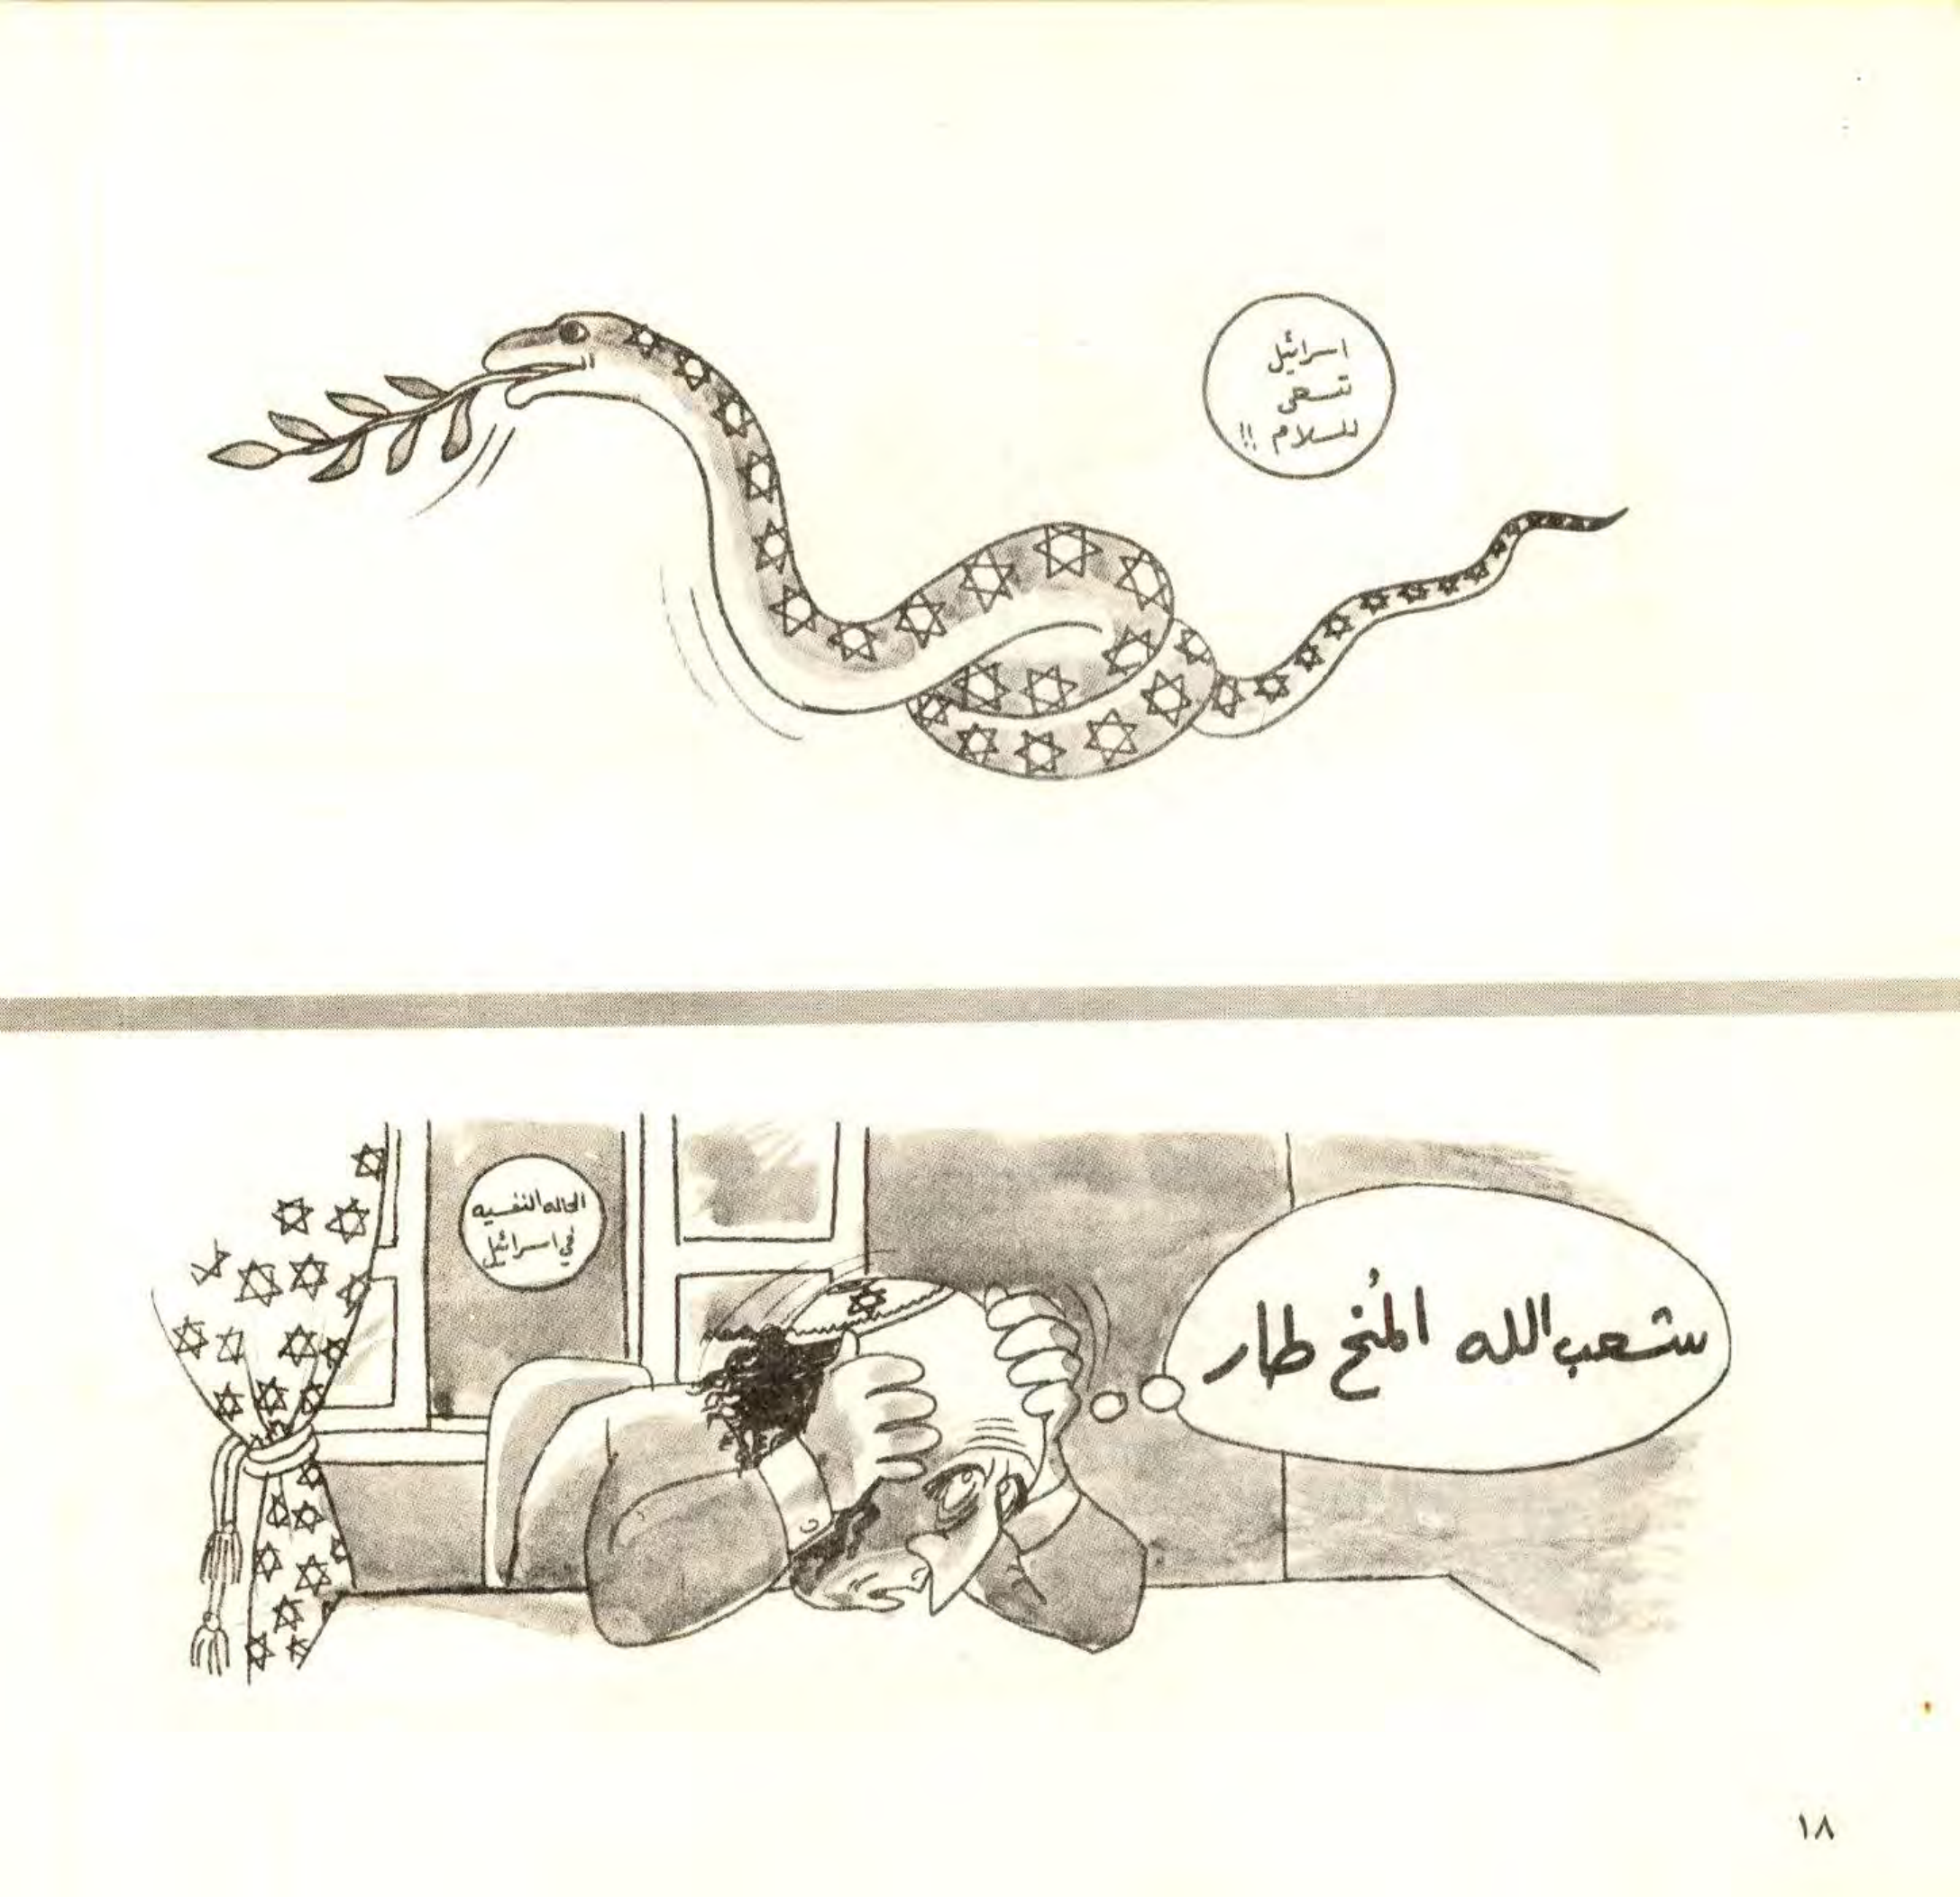 اسرائيل
تسعى
للسلام !!
الحاله النفسيه
في اسرائيل
شعب الله المُخ طار
١٨